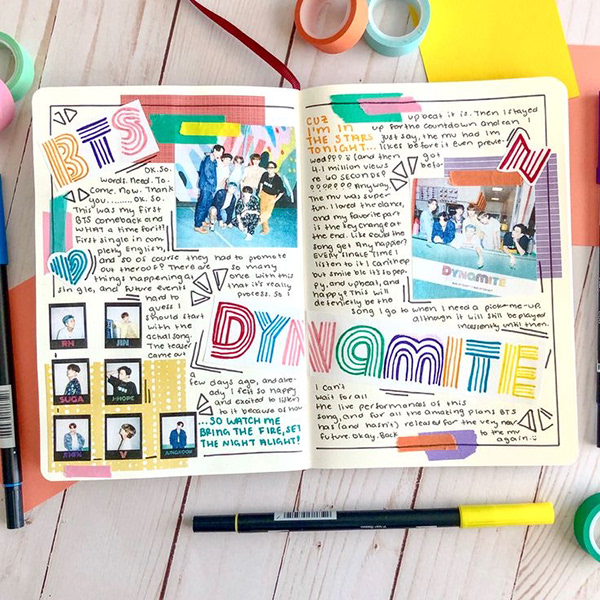 BTS
OK. SO.
Words. Need. To.
Come. Now. Thank
you......... OK. SO.
This was my first
BTS comeback and
WHAT a time for it!
First single in com-
pletly English
and so of course they had to promote
out there of? There are so many
things happening a one with this
single, and future event that it's really
hard to process. So I
guess I
should start
with the
actual song.
The teaser
came out
a
few days ago, and alre-
ady I felt so happy
and excited to listen
to it because of how
...SO WATCH ME
BRING THE FIRE, SET
THE NIGHT ALIGHT!
RM
JIN
SUGA
J-HOPE
JIMIN
V
JUNGKOOK
CUZ
I'M IN
THE STARS
TONIGHT...
upbeat it is. Then I stayed
up for the countdown and can I
just say, the mv had 1m
likes before it even premie-
red??? (and then got
4.1 million views before
40 seconds?
??????? Anyway.
The mv was super
fun. I loved the dance,
and my favorite part
is the key change at
the end. Like could the
song get any happier?
EVERY SINGLE TIME I
listen to it I can't help
but smile bc it's so pep-
py, and upbeat, and
happy! This will
definetely be the
song I go to when I need a pick-me-up
although it will still be played
incessantly until then.
N
DYNAMITE
DYNAMITE
I can't
wait for all
the live performances of this
song, and for all the amazing plans BTS
has (and hasn't) released for the very near
future. Okay. Back to the mv
again. :)